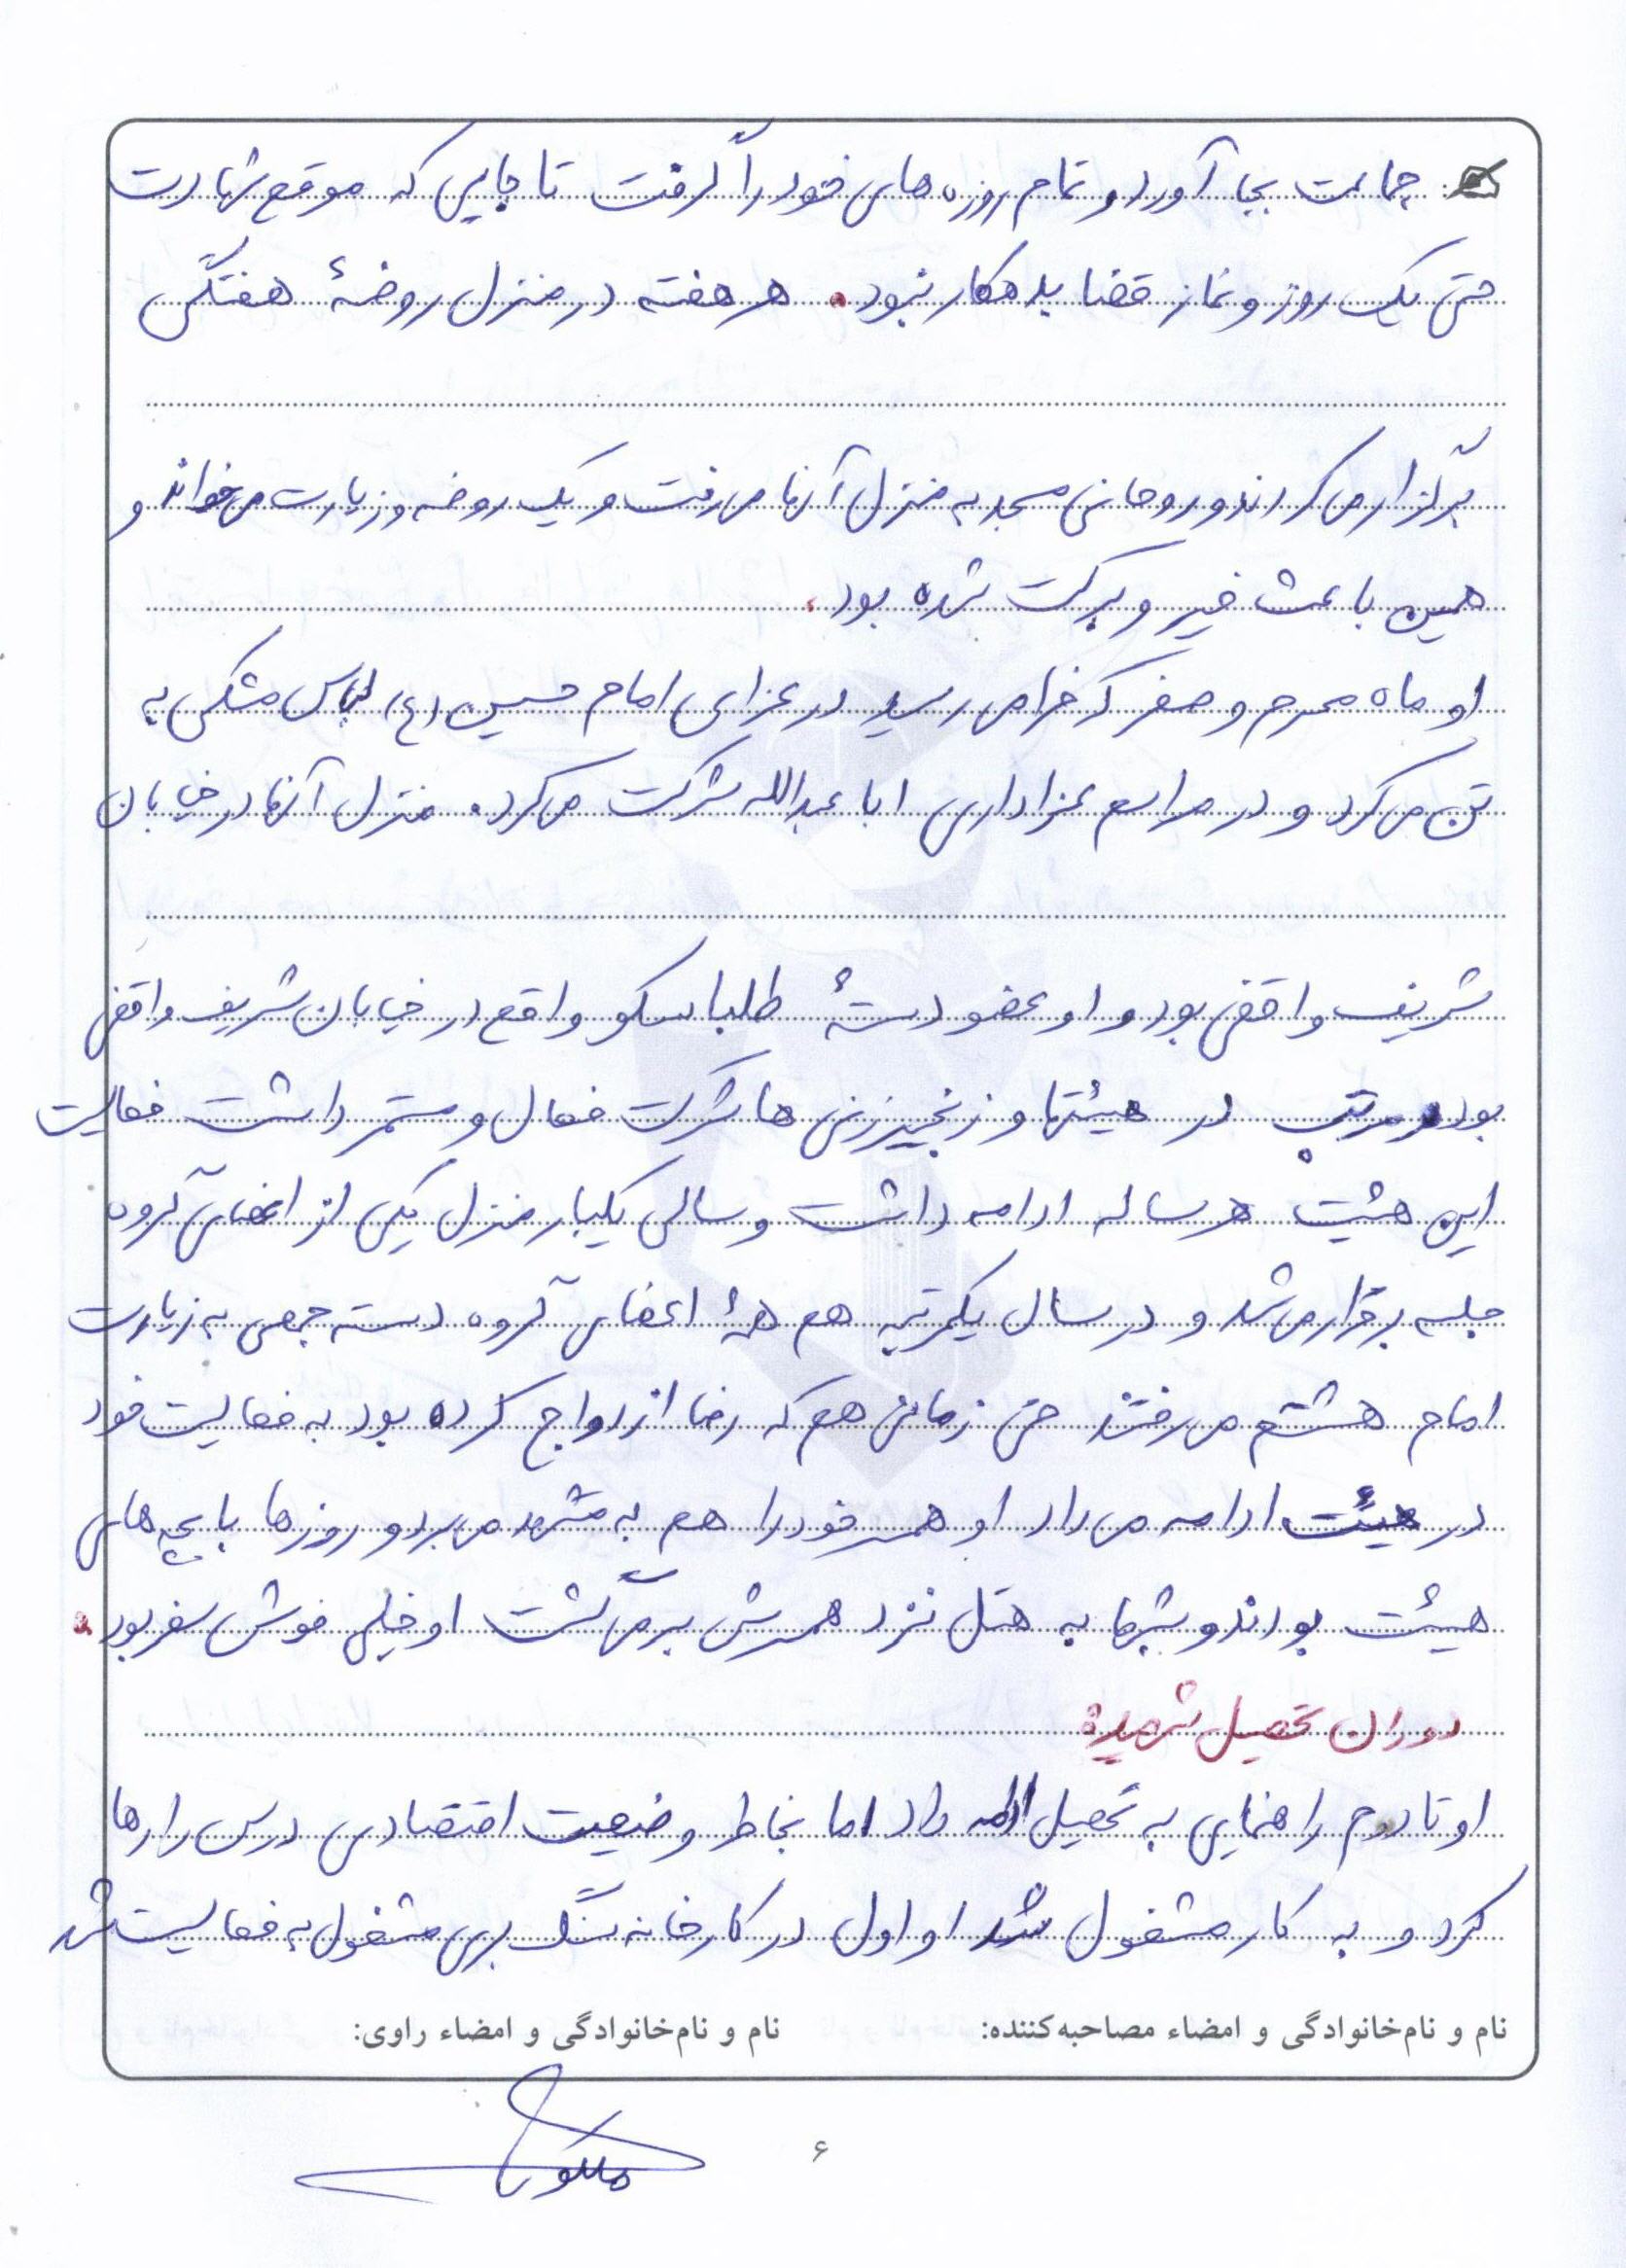 جماعت بجا آورد و تمام روزه های خود را گرفت تا جایی که موقع شهادت
حتی یک روز و نماز قضا بدهکار نبود. هر هفته در منزل روضهٔ هفتگی
برگزار می کردند و روحانی مسجد به منزل آنها می رفت و یک روضه و زیارت می خواند و
همین باعث خیر و برکت شده بود.
او ماه محرم و صفر که فرا می رسید در عزای امام حسین (ع) لباس مشکی به
تن می کرد و در مراسم عزاداری ابا عبدالله شرکت می کرد. منزل آنها در خیابان
شریف واقفی بود و او عضو دستهٔ طلبا سکو واقع در خیابان شریف واقفی
بود و مرتب در هیئتها و زنجیرزنی ها شرکت فعال و مستمر داشت فعالیت
این هئیت هر ساله ادامه داشت و سالی یکبار منزل یکی از اعضای گروه
جلسه برقرار می شد و در سال یکمرتبه هم همهٔ اعضای گروه دسته جمعی به زیارت
امام هشتم می رفتند حتی زمانی هم که رضا ازدواج کرده بود به فعالیت خود
در هیئت ادامه می داد او همسر خود را هم به مشهد می برد و روزها با بچه های
هیئت بودند و شبها به هتل نزد همسرش بر می گشت او خیلی خوش سفر بود.
دوران تحصیل شهید:
او تا دوم راهنمایی به تحصیل ادامه داد اما بخاطر وضعیت اقتصادی درس را رها
کرد و به کار مشغول شد او اول در کارخانه سنگ بری مشغول به فعالیت شد
نام و نام‌خانوادگی و امضاء مصاحبه‌کننده: نام و نام‌خانوادگی و امضاء راوی:
۶